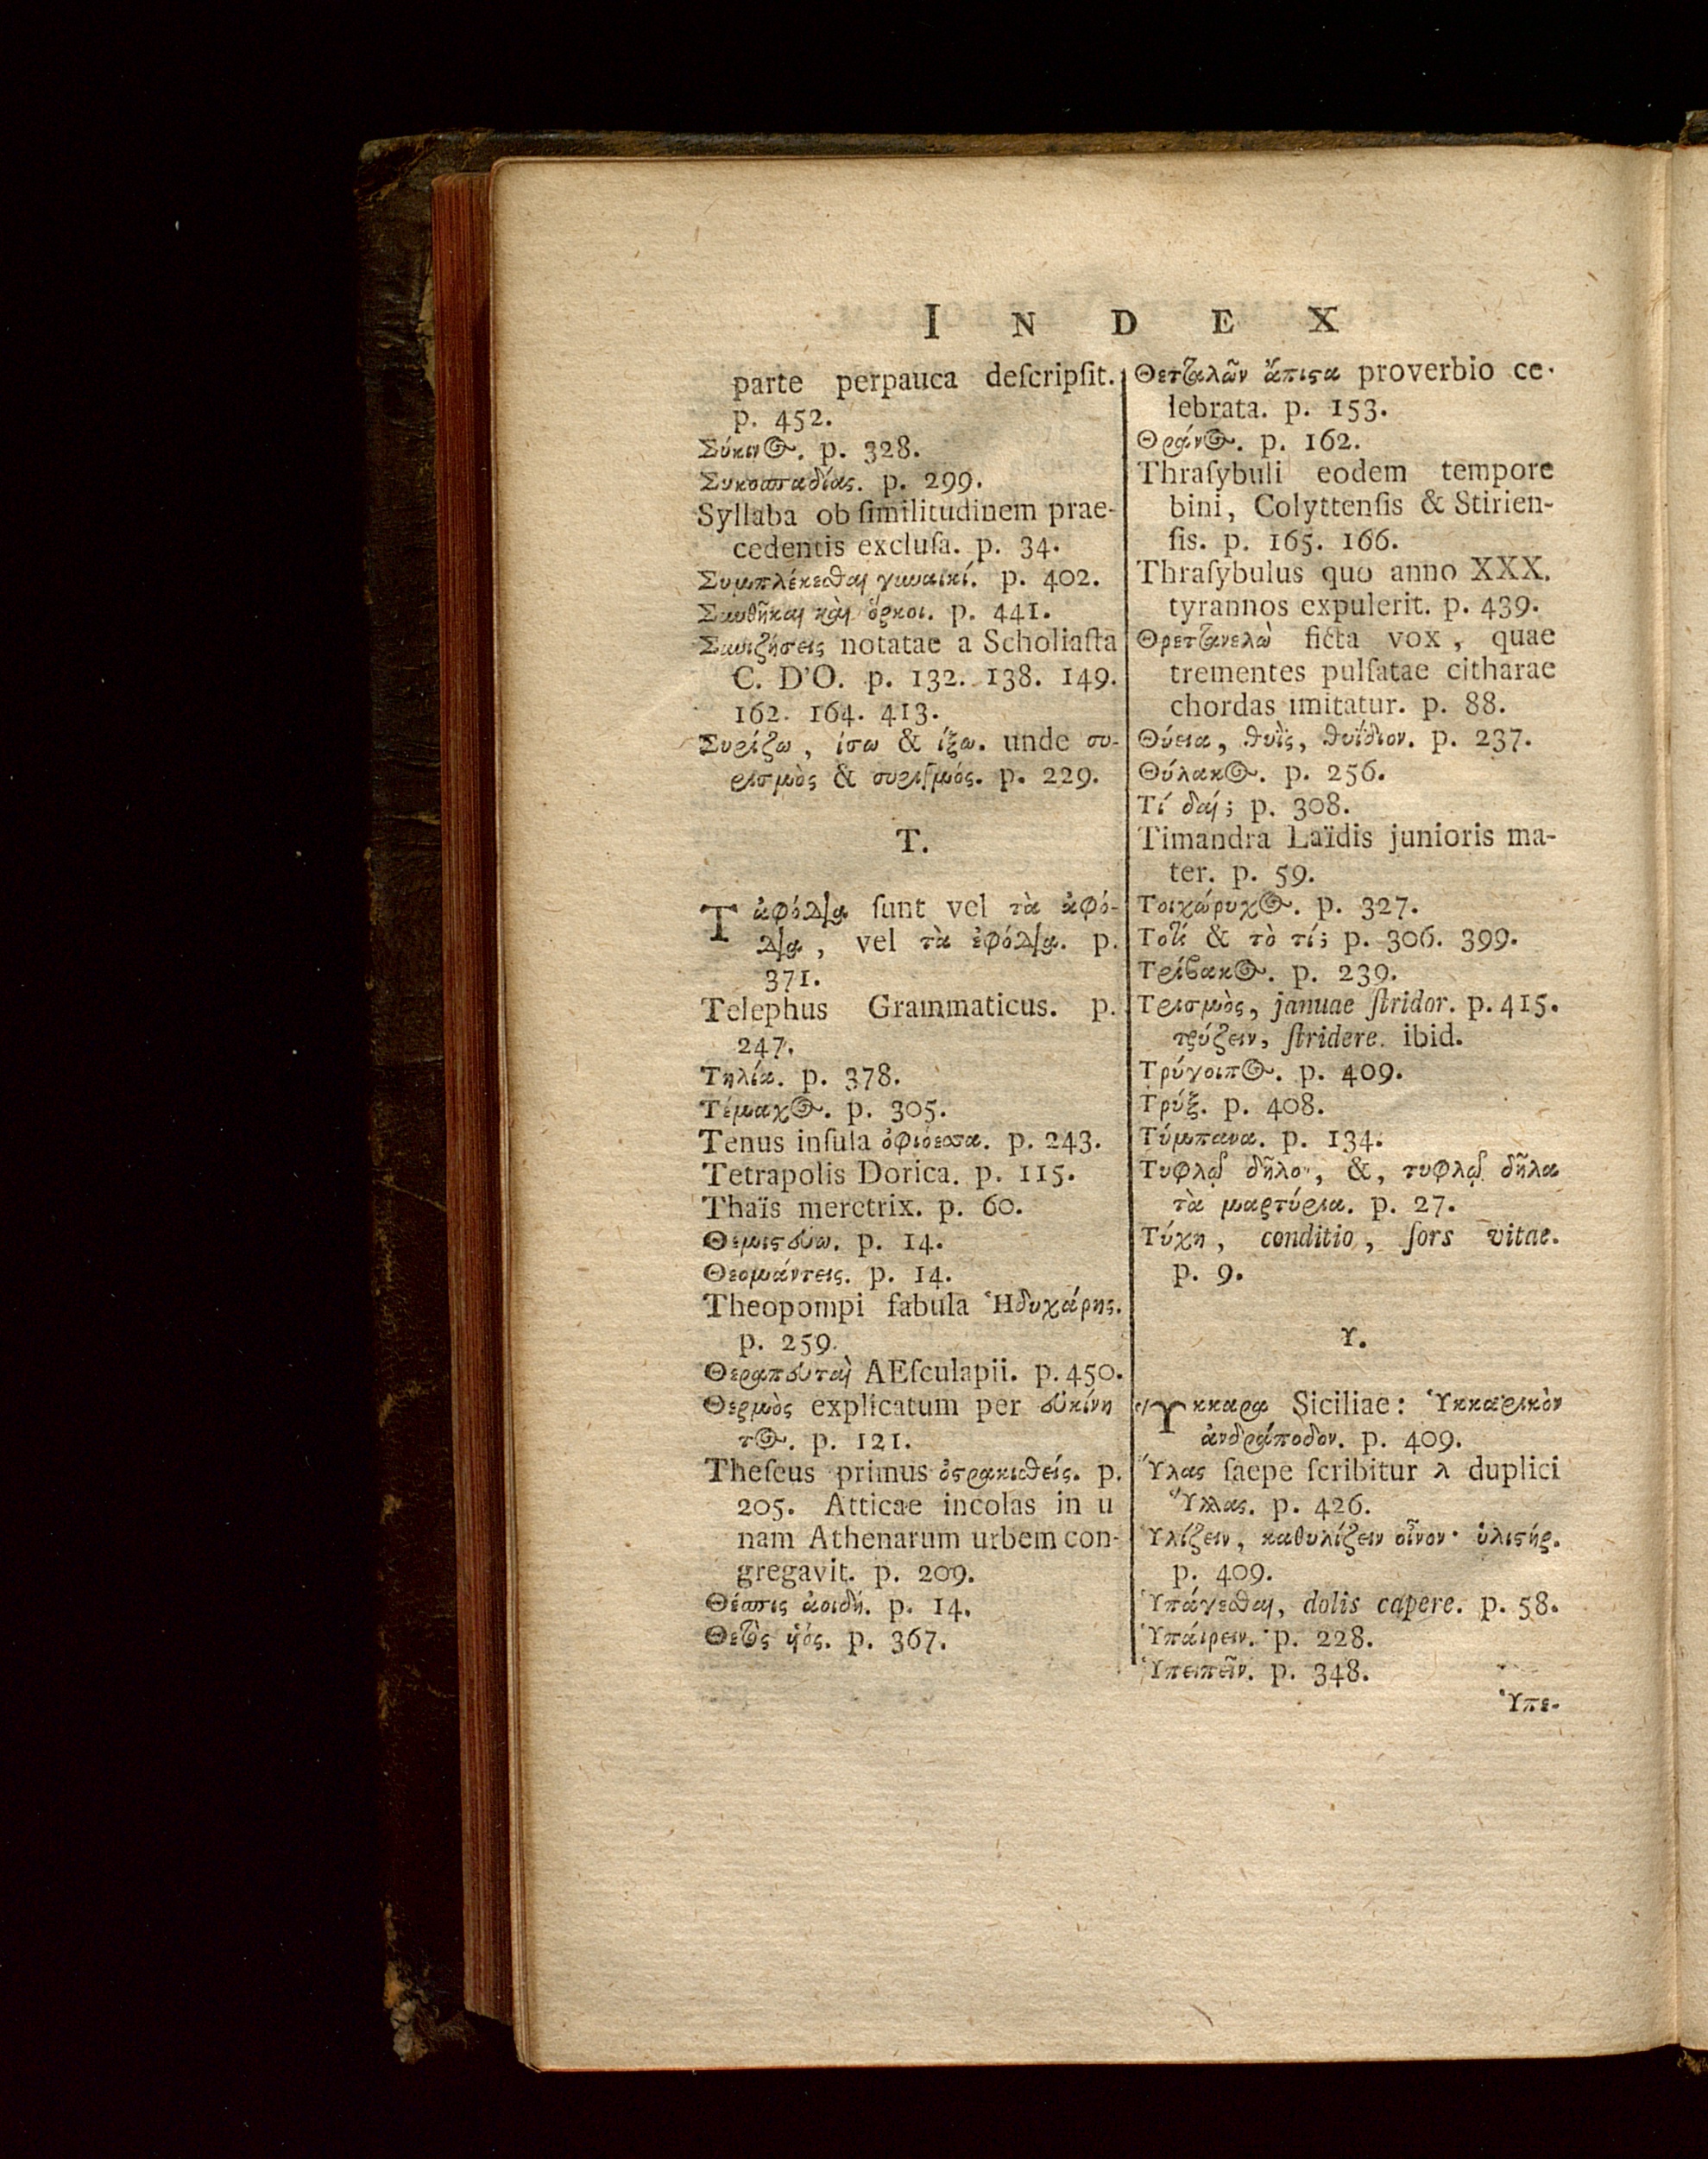 INDEX
parte perpauca deſcripſit.
p. 452.
Σύκινος. p. 328.
Συκοσπαδίας. p. 299.
Syllaba ob ſimilitudinem prae-
cedentis excluſa. p. 34.
Συμπλέκεσθαι γυναικί. p. 402.
Συνθῆκαι καὶ ὅρκοι. p. 441.
Συνιζήσεις notatae a Scholiaſta
C. D'O. p. 132. 138. 149.
162. 164. 413.
Συρίζω, ίσω & ίξω. unde συ-
ρισμὸς & συριγμός. p. 229.
T.
Τἀφόδια ſunt vel τὰ ἀφό-
δια, vel τὰ ἐφόδια. p.
371.
Telephus Grammaticus. p.
247.
Τηλία. p. 378.
Τέμαχος. p. 305.
Tenus inſula ὀφιόεσσα. p. 243.
Tetrapolis Dorica. p. 115.
Thaïs meretrix. p. 60.
Θεμιστεύω. p. 14.
Θεομάντεις. p. 14.
Theopompi fabula Ἡδυχάρης.
p. 259.
Θεραπευταὶ AEſculapii. p. 450.
Θερμὸς explicatum per εὐκίνη
τος. p. 121.
Theſeus primus ὀστρακισθείς. p.
205. Atticae incolas in u
nam Athenarum urbem con-
gregavit. p. 209.
Θέσπις ἀοιδή. p. 14.
Θετὸς ὑός. p. 367.
Θετταλῶν ἄπιστα proverbio ce-
lebrata. p. 153.
Θράνος. p. 162.
Thraſybuli eodem tempore
bini, Colyttenſis & Stirien-
ſis. p. 165. 166.
Thraſybulus quo anno XXX.
tyrannos expulerit. p. 439.
Θρεττανελὼ ficta vox, quae
trementes pulſatae citharae
chordas imitatur. p. 88.
Θύεια, θυῒς, θυΐδιον. p. 237.
Θύλακος. p. 256.
Τί δαί; p. 308.
Timandra Laïdis junioris ma-
ter. p. 59.
Τοιχώρυχος. p. 327.
Τοτί & τὸ τί; p. 306. 399.
Τρίβακος. p. 239.
Τρισμὸς, januae ſtridor. p. 415.
τρύζειν, ſtridere. ibid.
Τρύγοιπος. p. 409.
Τρύξ. p. 408.
Τύμπανα. p. 134.
Τυφλῷ δῆλον, &, τυφλῷ δῆλα
τὰ μαρτύρια. p. 27.
Τύχη, conditio, ſors vitae.
p. 9.
Υ.
Ὕκκαρα Siciliae: Ὑκκαρικὸν
ἀνδράποδον. p. 409.
Ὕλας ſaepe ſcribitur λ duplici
Ὕλλας. p. 426.
Ὑλίζειν, καθυλίζειν οἶνον· ὑλιστήρ.
p. 409.
Ὑπάγεσθαι, dolis capere. p. 58.
Ὑπαίρειν. p. 228.
Ὑπειπεῖν. p. 348.
Ὑπε-